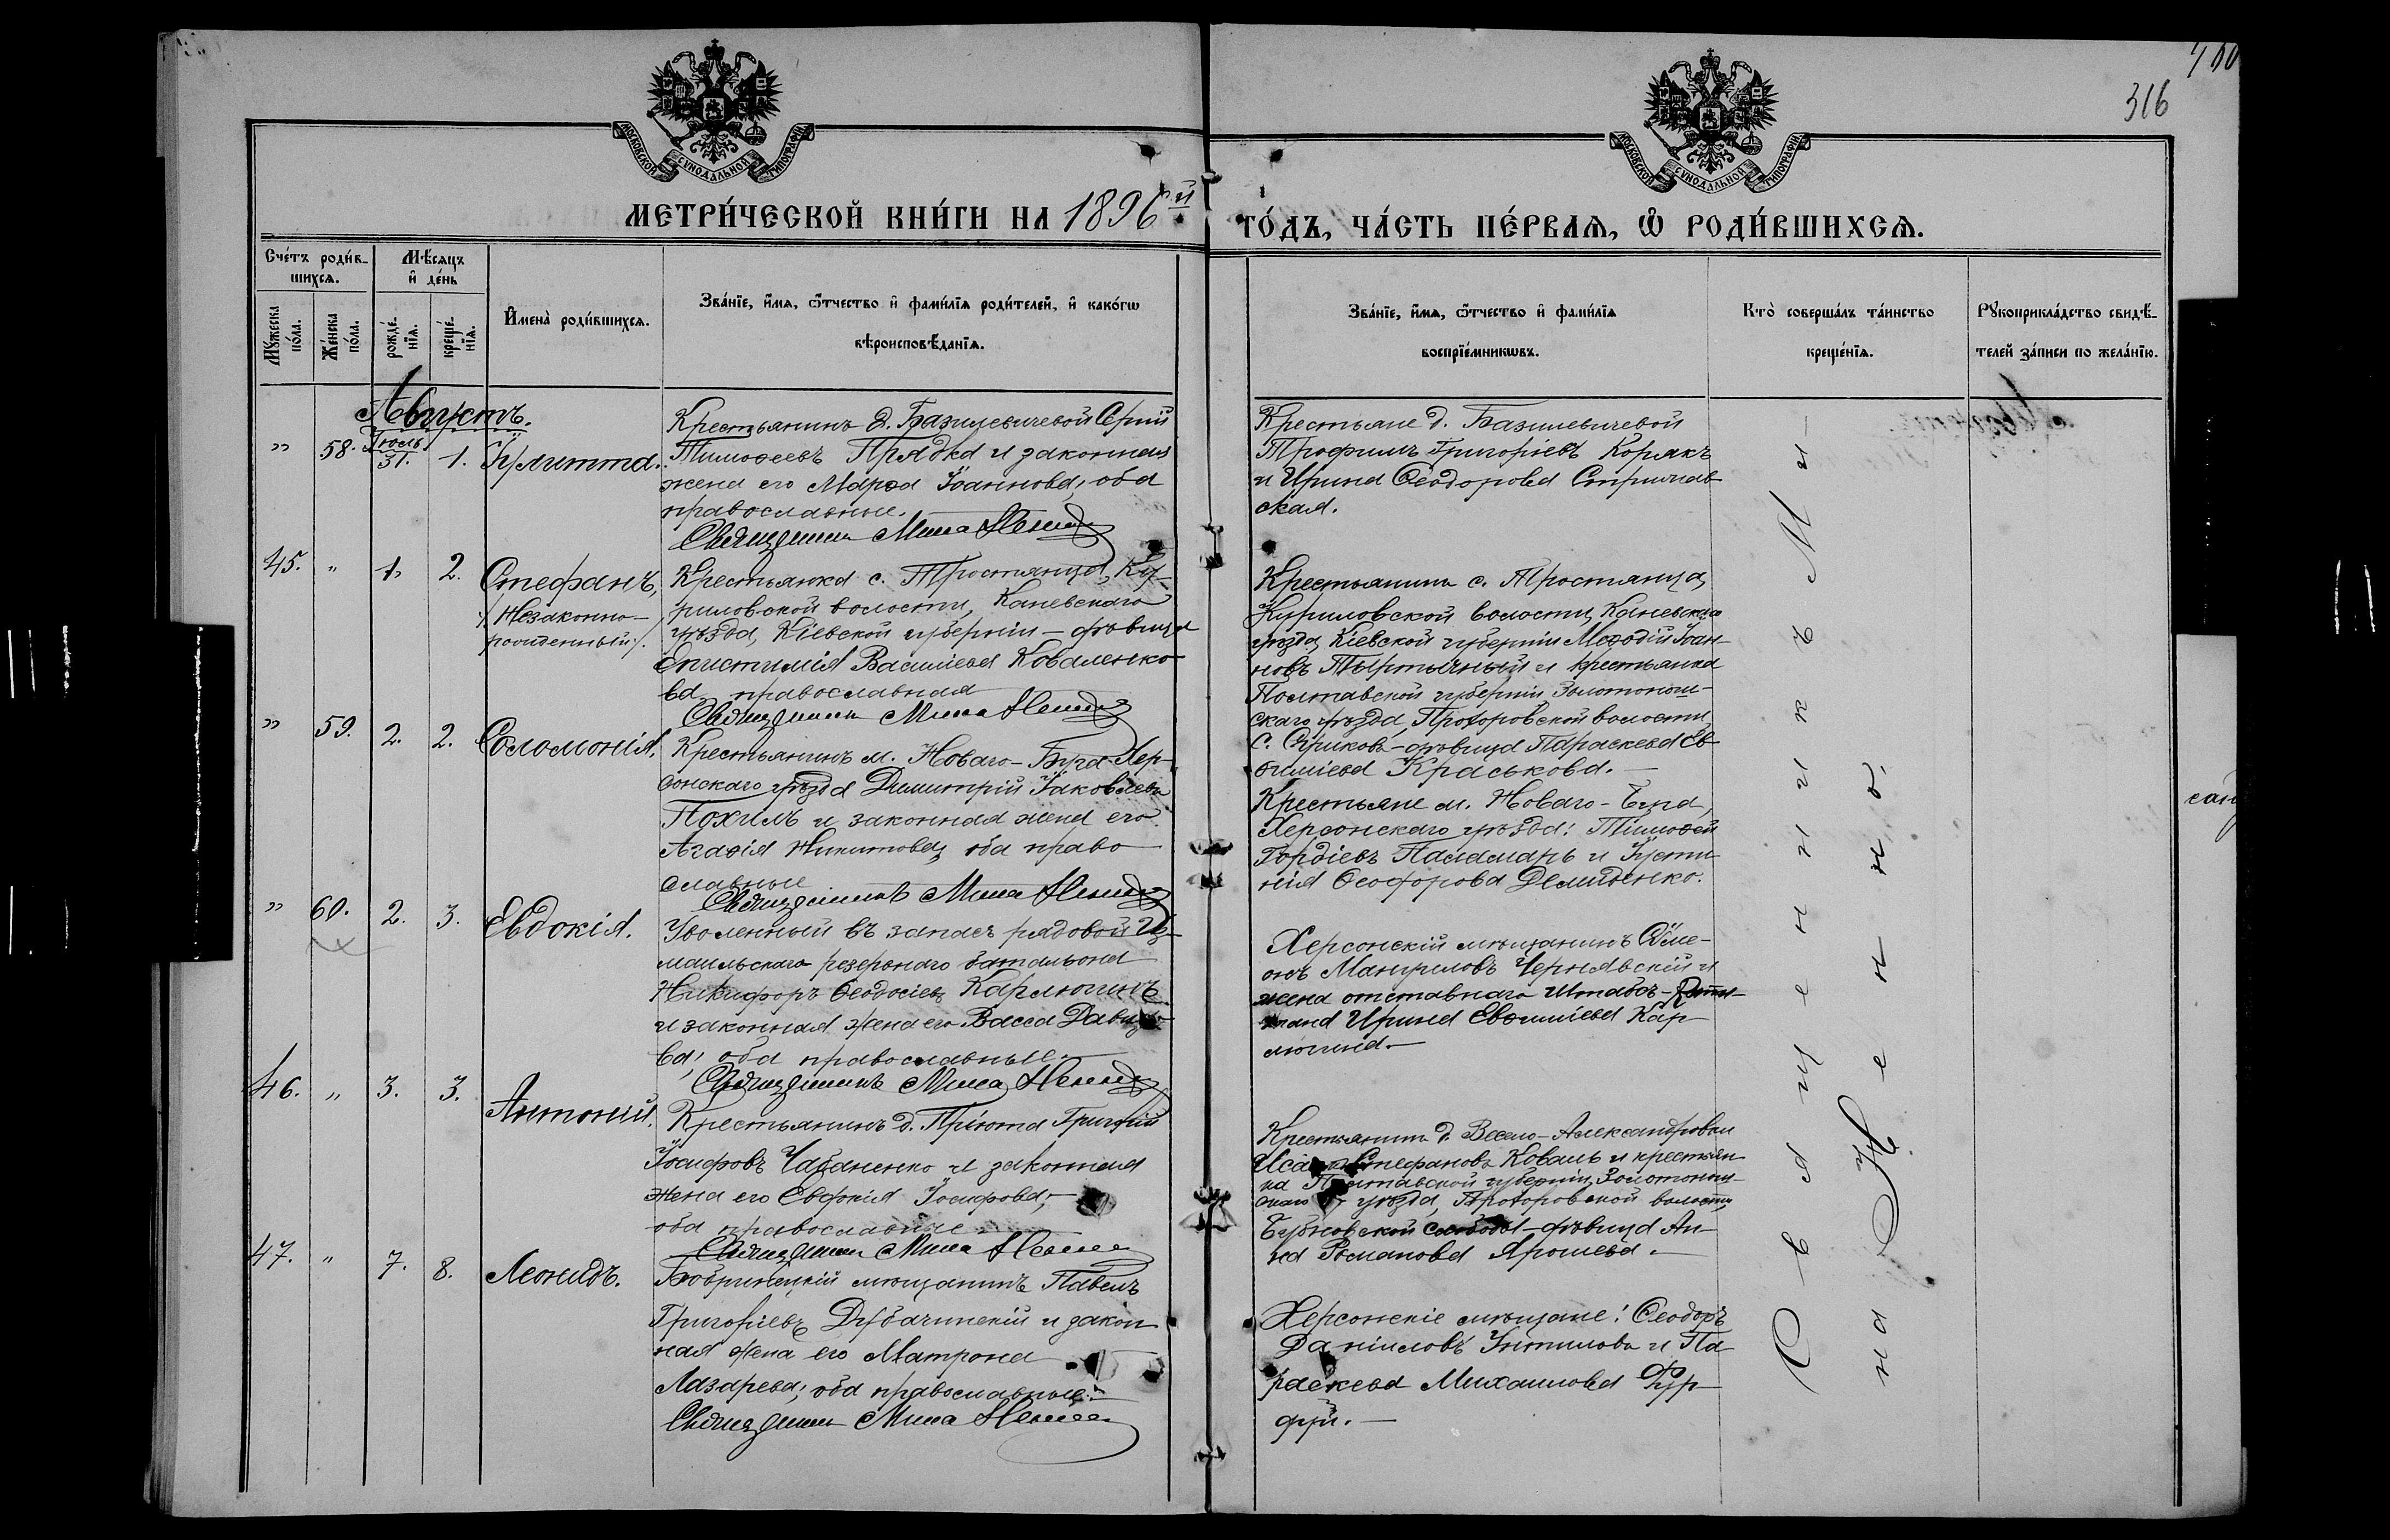 460
316
МОСКОВСКОЙ СѴНОДАЛЬНОЙ ТИПОГРАФІИ
МОСКОВСКОЙ СѴНОДАЛЬНОЙ ТИПОГРАФІИ
МЕТРИ́ЧЕСКОЙ КНИ́ГИ НА 1896й
ГО́ДЪ, ЧА́СТЬ ПЕ́РВАѦ, Ѡ҆ РОДИ́ВШИХСѦ.
Сче́тъ роди́в-
шихсѧ.
Мѣ́сѧцъ
и҆ де́нь
Мꙋ́жеска по́ла.
Же́нска по́ла.
рожде́-
нїѧ.
креще́-
нїѧ.
И҆мена̀ роди́вшихсѧ.
Зва́нїе, и҆́мѧ, ѻ҆́тчество и҆ фами́лїѧ роди́телей, и҆ како́гѡ
вѣроисповѣ́данїѧ.
Зва́нїе, и҆́мѧ, ѻ҆́тчество и҆ фами́лїѧ
воспрїе́мникѡвъ.
Кто̀ соверша́лъ та́инство
креще́нїѧ.
Рꙋкоприкла́дство свидѣ́-
телей за́писи по жела́нїю.
Августъ.
" 58. Іюль 31. 1. Іулитта.
Крестьянинъ д. Базилевичевой Сергій
Тимоѳеевъ Прядка и законная
жена его Марѳа Іоаннова, оба
православные.
Священникъ Мина
Крестьяне д. Базилевичевой
Трофимъ Григоріевъ Корякъ
и Ирина Ѳеодорова
ская.
45. " 1. 2. Стефанъ,
/Незаконно-
рожденный/.
Крестьянка с. Тростянца, Ку-
риловской волости, Каневскаго
уѣзда, Кіевской губерніи - дѣвица
Епистимія Василіева Коваленко-
ва православная
Священникъ Мина
Крестьянинъ с. Тростянца,
Куриловской волости, Каневскаго
уѣзда, Кіевской губерніи Меѳодій Іоан-
новъ и крестьянка
Полтавской губерніи Золотонош-
скаго уѣзда, Прохоровской волости,
с. - дѣвица Параскева Ев-
ѳиміева Краськова.-
" 59. 2. 2. Соломонія.
Крестьянинъ м. Новаго-Буга Хер-
сонскаго уѣзда Димитрій Іаковлевъ
Похилъ и законная жена его
Агаѳія Никитова, оба право-
славные
Священникъ Мина
Крестьяне м. Новаго-Буга,
Херсонскаго уѣзда: Тимоѳей
Гордіевъ Паламарь и Іусти-
нія Ѳеодорова Демиденко.
" 60. 2. 3. Евдокія.
Уволенный въ запасъ рядовой Из-
маильскаго резервнаго баталіона
Никифоръ Ѳеодосіевъ Карлюгинъ
и законная жена его Васса Давидо-
ва; оба православные.
Священникъ Мина
Херсонскій мѣщанинъ Сѵме-
онъ Мануиловъ Чернявскій и
жена отставнаго Штабсъ-
Ирина Евѳиміева Кар-
люгина.-
46. " 3. 3. Антоній.
Крестьянинъ д. Пріюта Григорій
Іосифовъ Чабаненко и законная
жена его Евдокія Іосифова,-
оба православные
Священникъ Мина
Крестьянинъ д. Весело-Александровки
Стефановъ Коваль и крестьян-
ка Полтавской губерніи, Золотонош-
скаго уѣзда, Прохоровской волости,
Бубновской слободы - дѣвица Ан-
на Романова Ярошева.-
47. " 7. 8. Леонидъ.
Бобринецкій мѣщанинъ Павелъ
Григоріевъ и закон-
ная жена его Матрона
Лазарева; оба православные.-
Священникъ Мина
Херсонскіе мѣщане: Ѳеодоръ
Даніиловъ и Па-
раскева Михаилова Фур-
фуй.-
Священникъ Ми-
на